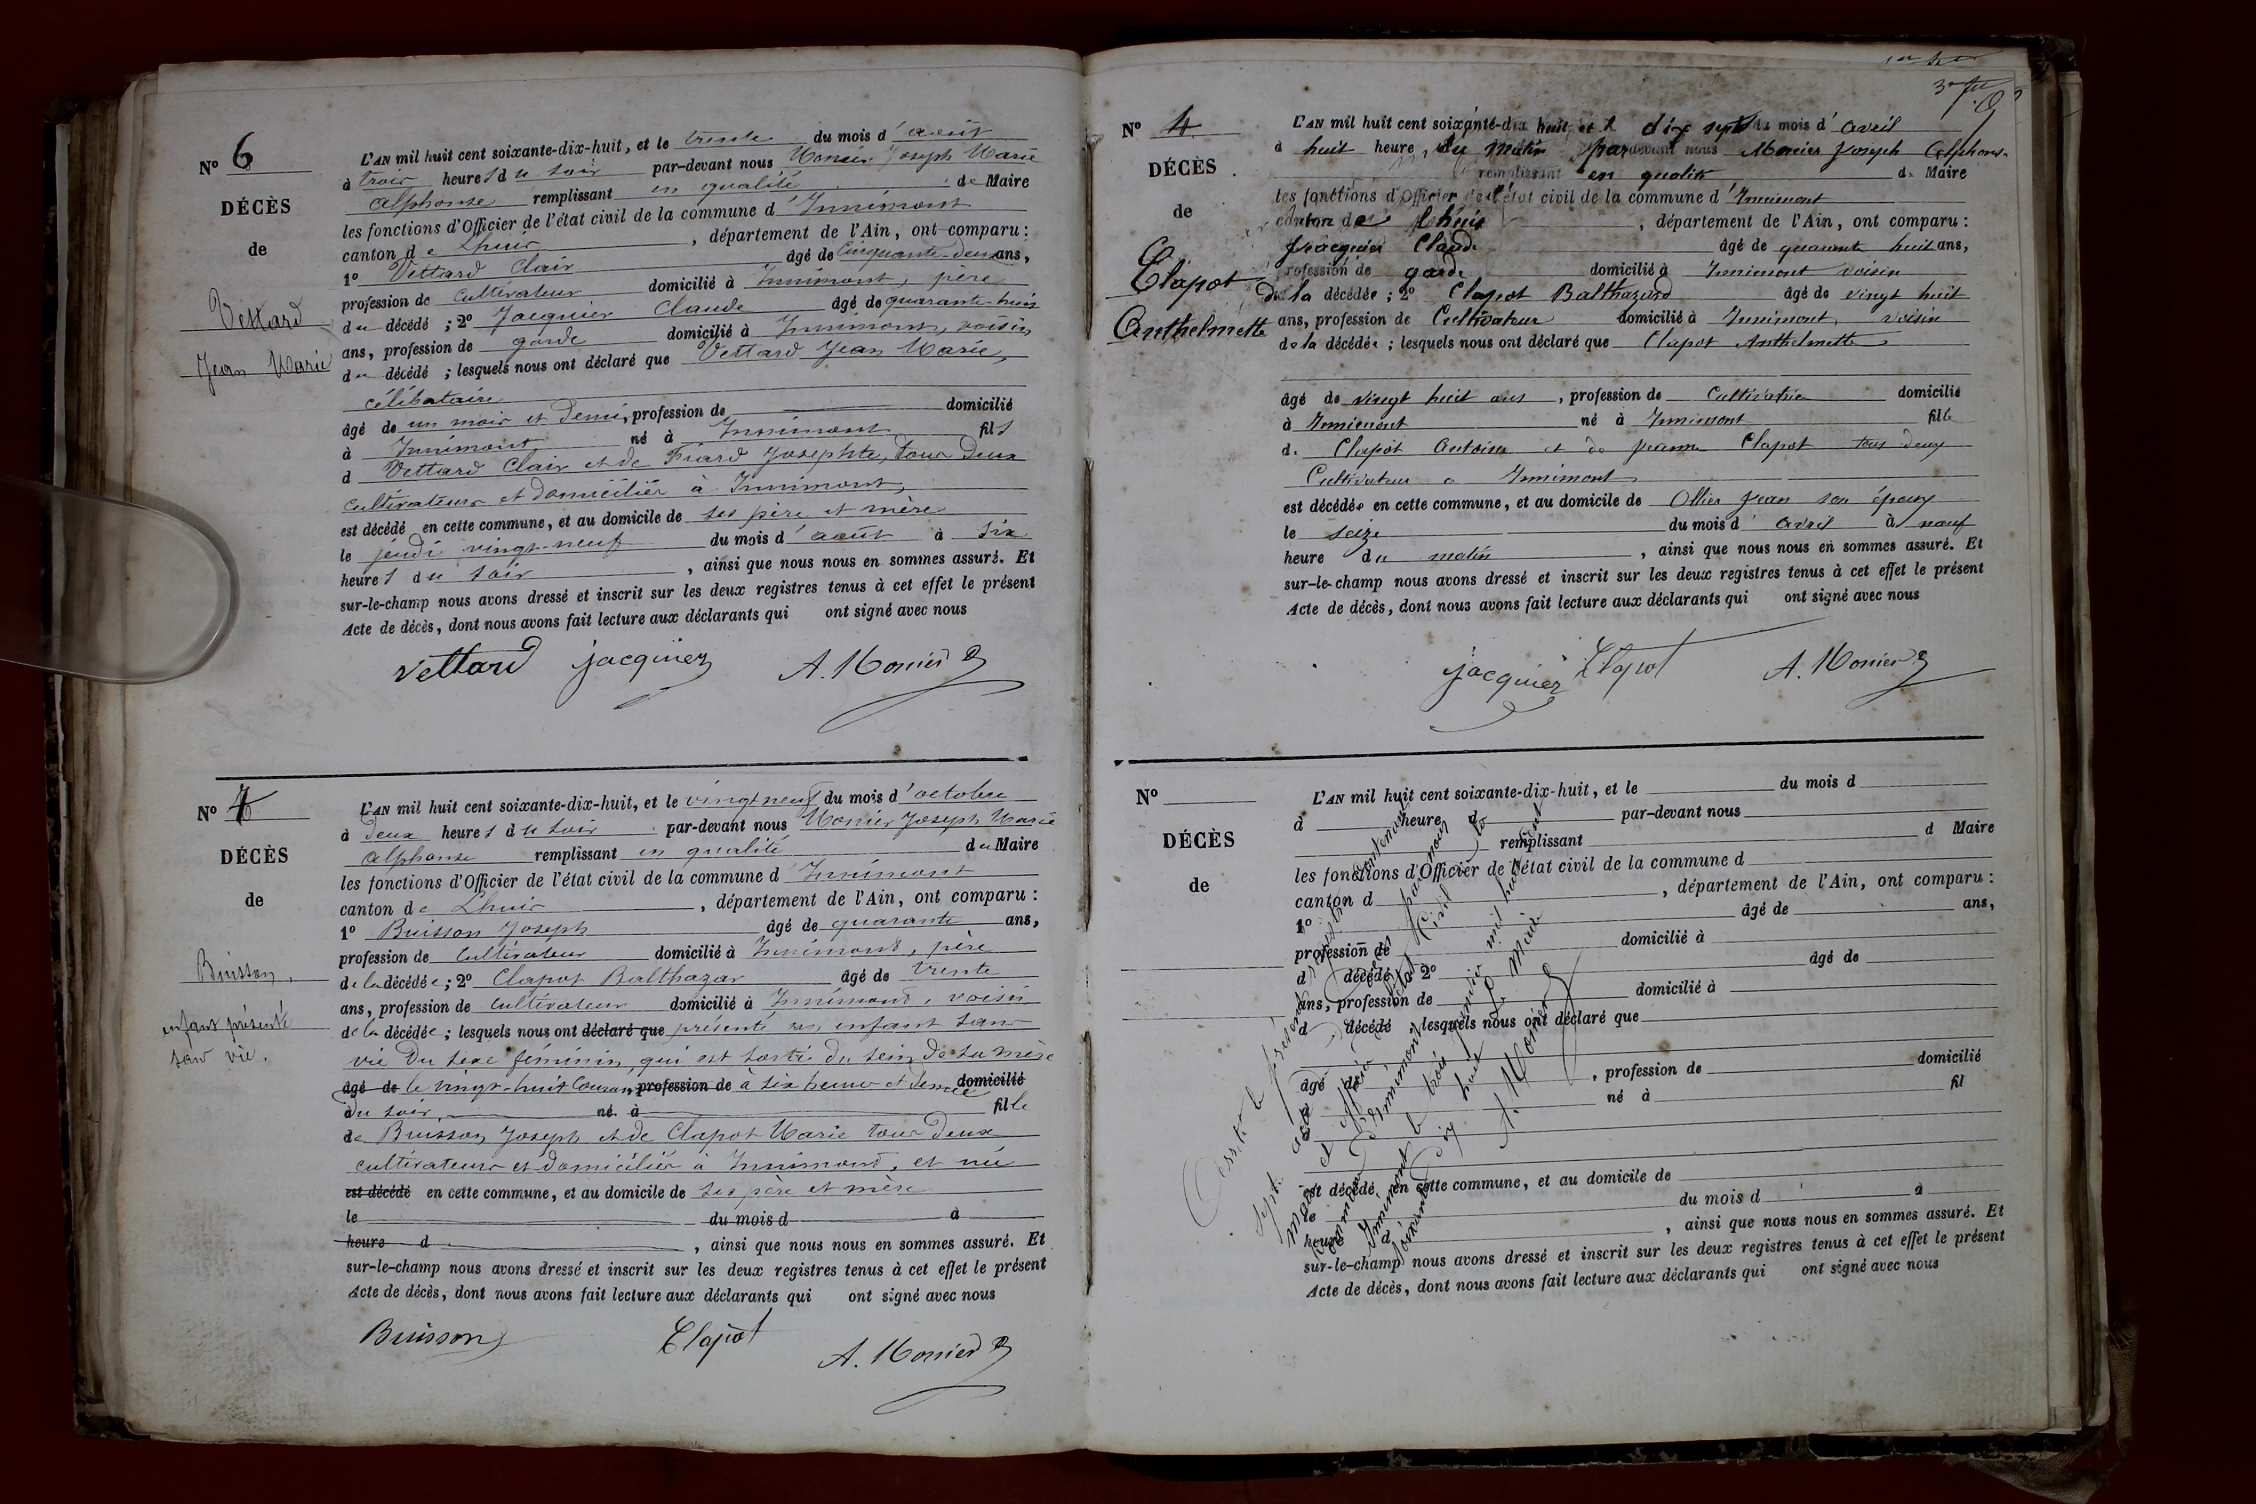 No 6
DÉCÈS
de
Vettard
Jean Marie
L'AN mil huit cent soixante-dix-huit, et le trente du mois d'août
à trois heures du soir par-devant nous Monier Joseph Marie
Alphonse remplissant en qualité de Maire
les fonctions d'Officier de l'état civil de la commune d'Innimont
canton de Lhuis, département de l'Ain, ont comparu :
1° Vettard Clair âgé de Cinquante-deux ans,
profession de Cultivateur domicilié à Innimont, père
du décédé ; 2° Jacquier Claude âgé de quarante-huit
ans, profession de garde domicilié à Innimont, voisin
du décédé ; lesquels nous ont déclaré que Vettard Jean Marie,
célibataire
âgé de un mois et demi, profession de domicilié
à Innimont né à Innimont fils
d Vettard Clair et de Friard Josephte, tous deux
cultivateurs et domiciliés à Innimont,
est décédé en cette commune, et au domicile de ses père et mère
le jeudi vingt-neuf du mois d'août à six
heures du soir, ainsi que nous nous en sommes assuré. Et
sur-le-champ nous avons dressé et inscrit sur les deux registres tenus à cet effet le présent
Acte de décès, dont nous avons fait lecture aux déclarants qui ont signé avec nous
Vettard Jacquier A. Monier
No 7
DÉCÈS
de
Buisson,
enfant présenté
sans vie.
L'AN mil huit cent soixante-dix-huit, et le vingt neuf du mois d'octobre
à deux heures du soir par-devant nous Monier Joseph Marie
Alphonse remplissant en qualité de Maire
les fonctions d'Officier de l'état civil de la commune d'Innimont
canton de Lhuis, département de l'Ain, ont comparu :
1° Buisson Joseph âgé de quarante ans,
profession de Cultivateur domicilié à Innimont, père
de la décédée ; 2° Clapot Balthazar âgé de trente
ans, profession de cultivateur domicilié à Innimont, voisin
de la décédée ; lesquels nous ont déclaré que présenté un enfant sans
vie du sexe féminin, qui est sorti du sein de sa mère
âgé de le vingt-huit Courant, profession de à six heures et demie domicilié
à du soir, né à fille
de Buisson Joseph et de Clapot Marie tous deux
cultivateurs et domiciliés à Innimont, et né
est décédé en cette commune, et au domicile de ses père et mère
le du mois d à
heure d, ainsi que nous nous en sommes assuré. Et
sur-le-champ nous avons dressé et inscrit sur les deux registres tenus à cet effet le présent
Acte de décès, dont nous avons fait lecture aux déclarants qui ont signé avec nous
Buisson Clapot A. Monier
No 4
DÉCÈS
de
Clapot
Anthelmette
L'AN mil huit cent soixante-dix huit et le dix sept du mois d'avril
à huit heure du matin par devant nous Monier Joseph Alphons.
remplissant en qualité de Maire
les fonctions d'Officier de l'état civil de la commune d'Innimont
canton de Lhuis, département de l'Ain, ont comparu :
Jacquier Claude âgé de quarant huit ans,
profession de garde domicilié à Innimont voisin
de la décédée ; 2° Clapot Balthazard âgé de vingt huit
ans, profession de Cultivateur domicilié à Innimont, voisin
de la décédée ; lesquels nous ont déclaré que Clapot Anthelmette
âgé de vingt huit ans, profession de Cultivatrice domicilié
à Innimont né à Innimont fille
de Clapot Antoine et de Clapot tous deux
Cultivateur a Innimont
est décédée en cette commune, et au domicile de Ollier Jean son époux
le seize du mois d'avril à neuf
heure du matin, ainsi que nous nous en sommes assuré. Et
sur-le-champ nous avons dressé et inscrit sur les deux registres tenus à cet effet le présent
Acte de décès, dont nous avons fait lecture aux déclarants qui ont signé avec nous
Jacquier Clapot A. Monier
No
DÉCÈS
de
L'AN mil huit cent soixante-dix-huit, et le du mois d
à heure d par-devant nous
remplissant d Maire
les fonctions d'Officier de l'état civil de la commune d
canton d, département de l'Ain, ont comparu :
1° âgé de ans,
profession de domicilié à
d décédé 2° âgé de
ans, profession de domicilié à
d décédé, lesquels nous ont déclaré que
âgé de, profession de domicilié
à né à fil
est décédé en cette commune, et au domicile de
le du mois d à
heure d, ainsi que nous nous en sommes assuré. Et
sur-le-champ nous avons dressé et inscrit sur les deux registres tenus à cet effet le présent
Acte de décès, dont nous avons fait lecture aux déclarants qui ont signé avec nous
le présent registre contenant
sept actes de décès par nous
Maire et officier de l'état Civil de la
Commune d'Innimont
Innimont le trois janvier mil huit cent
soixante dix huit Le Maire
A. Monier